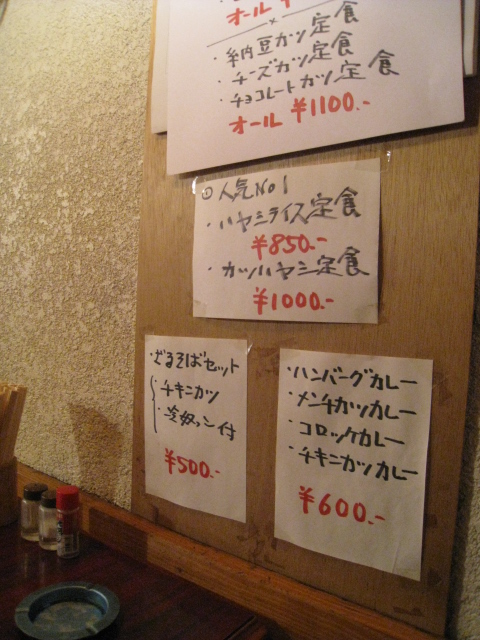 オール ¥
×
・納豆カツ定食
・チーズカツ定食
・チョコレートカツ定食
オール ¥1100.-
人気No1
・ハヤシライス定食
¥850.-
・カツハヤシ定食
¥1000.-
・ざるそばセット
チキンカツ
・冷奴 付
¥500.-
・ハンバーグカレー
・メンチカツカレー
・コロッケカレー
・チキンカツカレー
¥600.-